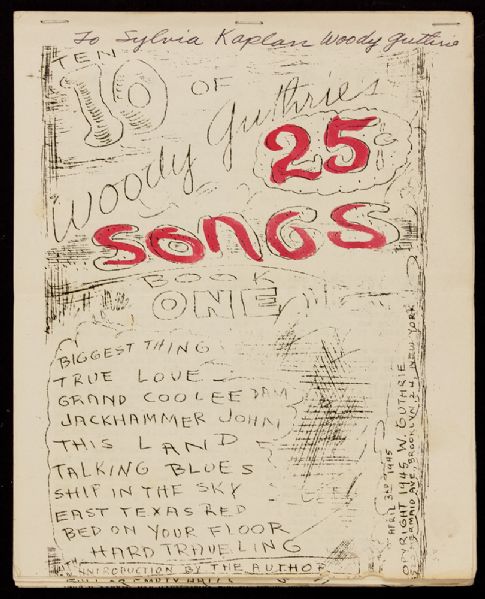 To Sylvia Kaplan Woody Guthrie
TEN
10 OF
Woody Guthries
25¢
SONGS
BOOK
ONE
BIGGEST THING
TRUE LOVE
GRAND COOLEE DAM
JACKHAMMER JOHN
THIS LAND
TALKING BLUES
SHIP IN THE SKY
EAST TEXAS RED
BED ON YOUR FLOOR
HARD TRAVELING
INTRODUCTION BY THE AUTHOR
APRIL 3RD 1945
COPYRIGHT 1945 W. GUTHRIE
MERMAID AVE, BROOKLYN 24, NEW YORK